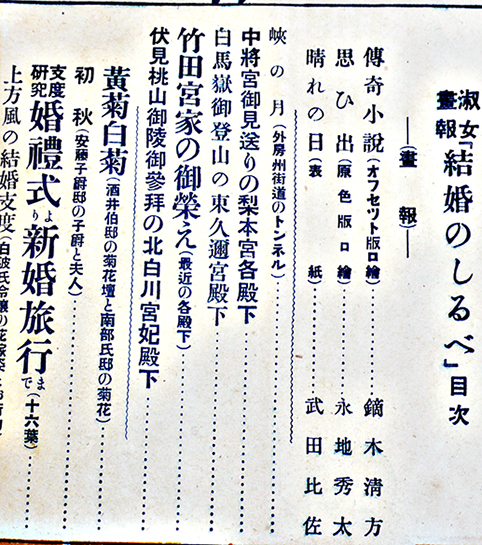 淑女畫報「結婚のしるべ」目次
―(畫報)―
傳奇小說(オフセツト版口繪)………鏑木淸方
思ひ出(原色版口繪)………永地秀太
晴れの日(表紙)………武田比佐
峽の月(外房州街道のトンネル)………
中將宮御見送りの梨本宮各殿下
白馬嶽御登山の東久邇宮殿下
竹田宮家の御榮え(最近の各殿下)………
伏見桃山御陵御參拜の北白川宮妃殿下
黃菊白菊(酒井伯邸の菊花壇と南部氏邸の菊花)………
初秋(安藤子爵邸の子爵と夫人)………
支度硏究婚禮式より新婚旅行まで(十六葉)………
上方風の結婚支度